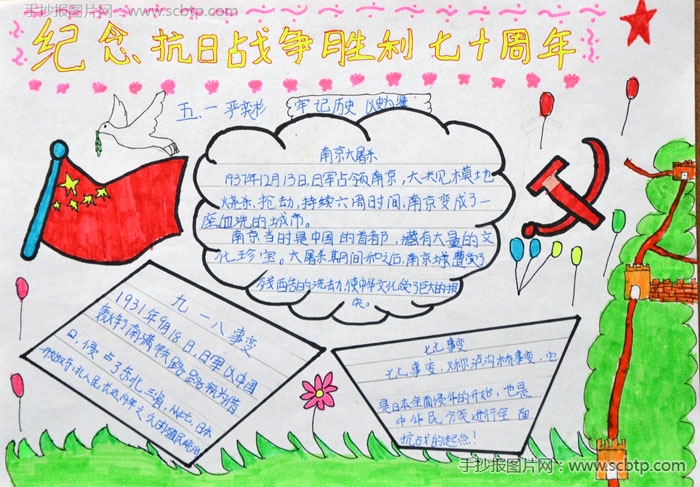 手抄报图片网 www.scbtp.com
纪念抗日战争胜利七十周年
五.一 严奕杉 牢记历史 以史为鉴
南京大屠杀
1937年12月13日,日军占领南京,大规模地
烧杀,抢劫,持续六周时间,南京变成了一
座血洗的城市。
南京当时是中国的首都,藏有大量的文
化珍宝。大屠杀期间和之后,南京城遭受了
的洗劫,使中华文化受了巨大的损
失。
九一八事变
1931年9月18日,日军以中国
南满铁路路 为借
口,侵占了东北三省,
七七事变
七七事变,又称卢沟桥事变,它
是日本全面侵华的开始,也是
中华民族进行全面
抗战的起点!
手抄报图片网:www.scbtp.com